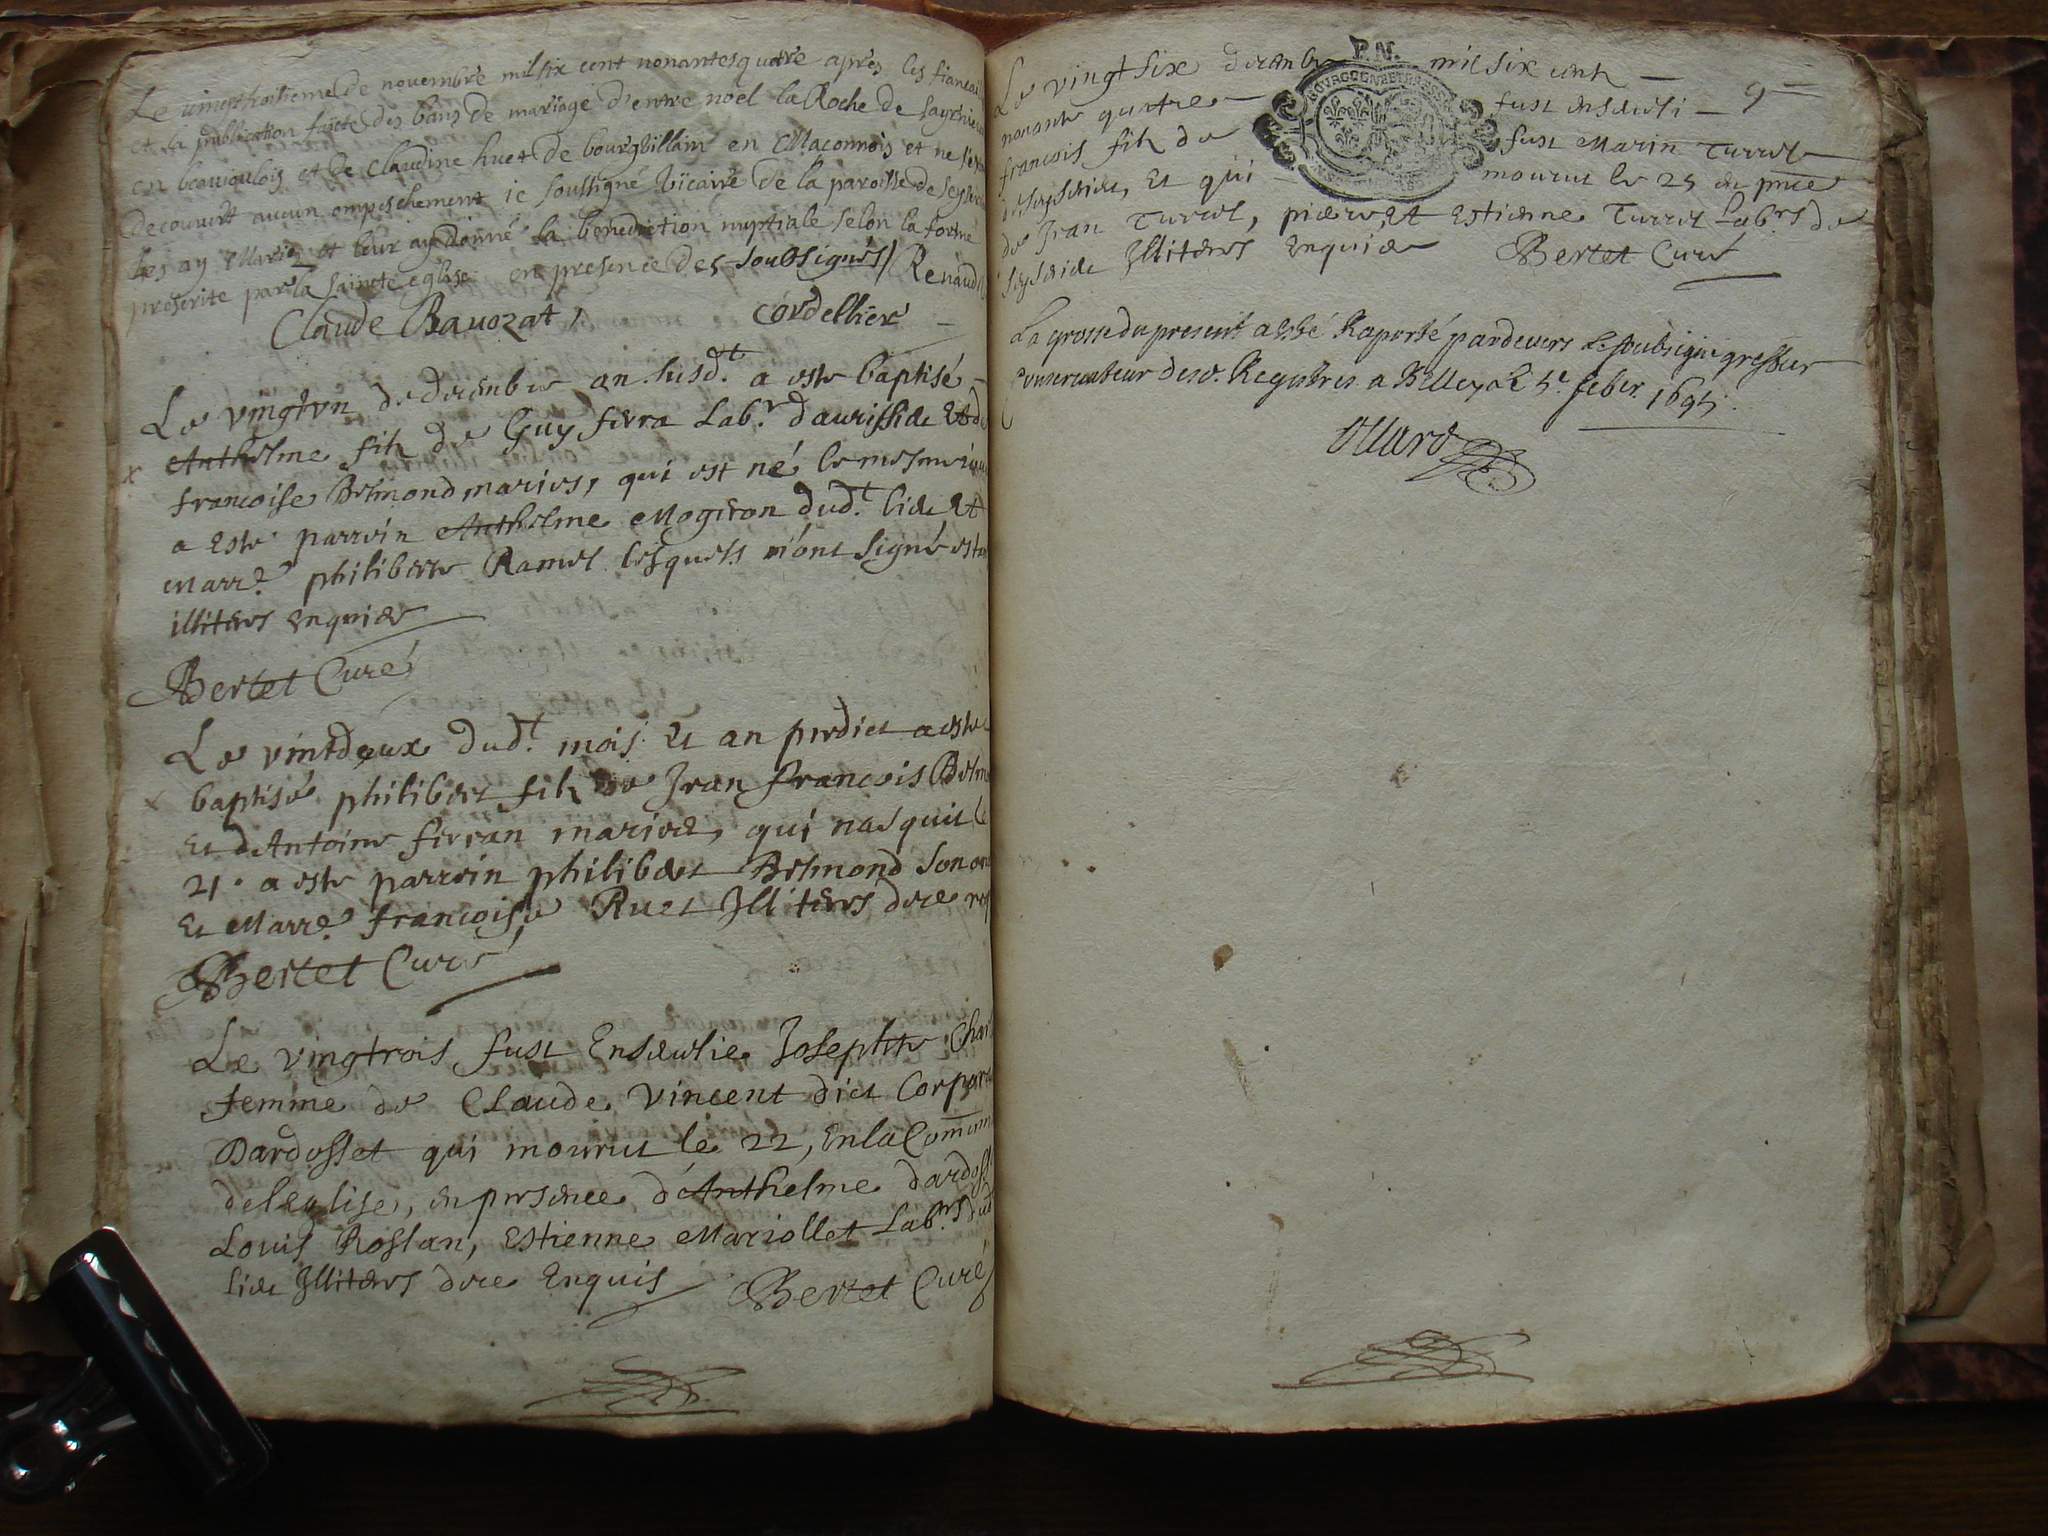 Le vingt huitieme de novembre mil six cent nonantesquatre apres les fiancai
et la publication faicte des bans de mariage d'entre noel la Roche de
en beauioulois et de Claudine huet de bourgbillain en Maconnois et ne s'est
decouvert aucun empeschement ie soussigné vicaire de la paroisse de
les ay Mariez et leur ay donné la benediction nuptiale selon la forme
prescrite par la saincte eglise en presence des soubsignés Renaud
Claude Bauozat cordellier
Le vingt vn de decembre an susd.t a este baptisé
x Anthelme filz de Guy ferra Lab.r et de
francoise Belmond maries, qui est né le mesme iour
a este parrein Anthelme Mogiron dud.t lieu Et
Marr.e philiberte Ramel lesquels n'ont signé estan
illiteres enquis
Bertet Curé
Le vintdeux dud.t mois Et an predict a este
x baptisé philibert filz de Jean francois Belm
Et d'Antoine ferran maries, qui nasquit le
21. a este parrein philibert Belmond son on
Et Marr.e francoise Ruet Illiteres de ce
Bertet Curé
Le vingtrois fust Ensevelie Josephte Char
femme de Claude Vincent dict Corpor
Dardosset qui mourut le 22, En la Commun
de leglise, en presence d'Anthelme dardoss
Louis Roslan, Estienne Mariollet Lab.rs dud
lieu Illiteres de ce Enquis Bertet Curé
P.N.
BOURGOGNE ET BRESSE
9
Le vingt six decembre mil six cent
nonante quatre fust enseveli
francois filz de fust Marin Turrel
et qui mourut le 25 en pnce
de Jean Turrel, pierre, Et Estienne Turrel Lab.rs de
Illiteres enquis Bertet Curé
La grosse du present a esté Raporté pardevers le soubsigné greffier
Conservateur desd. Registres a Belley le 5.e feber. 1695
Ollard